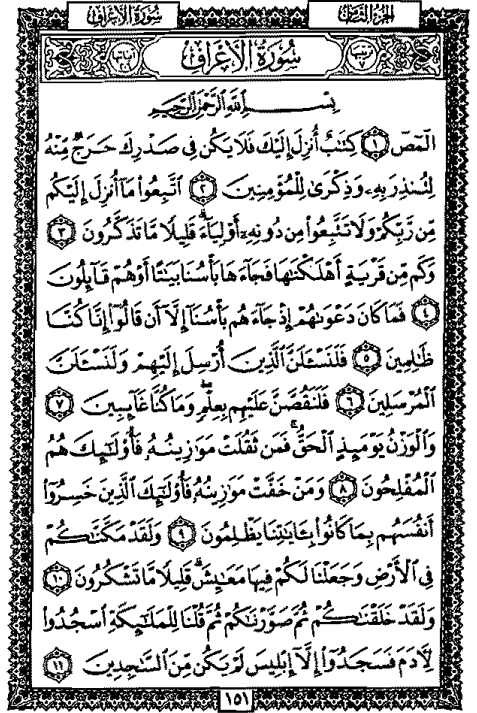 سُورَةُ الأَعْرَافِ الجُزْءُ الثَّامِنُ
ترتيبها ٧ سُورَةُ الأَعْرَافِ آياتها ٢٠٦
بِسْمِ اللَّهِ الرَّحْمَٰنِ الرَّحِيمِ
الٓمٓصٓ ١ كِتَٰبٌ أُنزِلَ إِلَيْكَ فَلَا يَكُن فِى صَدْرِكَ حَرَجٌ مِّنْهُ
لِتُنذِرَ بِهِۦ وَذِكْرَىٰ لِلْمُؤْمِنِينَ ٢ ٱتَّبِعُوا۟ مَآ أُنزِلَ إِلَيْكُم
مِّن رَّبِّكُمْ وَلَا تَتَّبِعُوا۟ مِن دُونِهِۦٓ أَوْلِيَآءَ ۗ قَلِيلًا مَّا تَذَكَّرُونَ ٣
وَكَم مِّن قَرْيَةٍ أَهْلَكْنَٰهَا فَجَآءَهَا بَأْسُنَا بَيَٰتًا أَوْ هُمْ قَآئِلُونَ
٤ فَمَا كَانَ دَعْوَىٰهُمْ إِذْ جَآءَهُم بَأْسُنَآ إِلَّآ أَن قَالُوٓا۟ إِنَّا كُنَّا
ظَٰلِمِينَ ٥ فَلَنَسْـَٔلَنَّ ٱلَّذِينَ أُرْسِلَ إِلَيْهِمْ وَلَنَسْـَٔلَنَّ
ٱلْمُرْسَلِينَ ٦ فَلَنَقُصَّنَّ عَلَيْهِم بِعِلْمٍ ۖ وَمَا كُنَّا غَآئِبِينَ ٧
وَٱلْوَزْنُ يَوْمَئِذٍ ٱلْحَقُّ ۚ فَمَن ثَقُلَتْ مَوَٰزِينُهُۥ فَأُو۟لَٰٓئِكَ هُمُ
ٱلْمُفْلِحُونَ ٨ وَمَنْ خَفَّتْ مَوَٰزِينُهُۥ فَأُو۟لَٰٓئِكَ ٱلَّذِينَ خَسِرُوٓا۟
أَنفُسَهُم بِمَا كَانُوا۟ بِـَٔايَٰتِنَا يَظْلِمُونَ ٩ وَلَقَدْ مَكَّنَّٰكُمْ
فِى ٱلْأَرْضِ وَجَعَلْنَا لَكُمْ فِيهَا مَعَٰيِشَ ۗ قَلِيلًا مَّا تَشْكُرُونَ ١٠
وَلَقَدْ خَلَقْنَٰكُمْ ثُمَّ صَوَّرْنَٰكُمْ ثُمَّ قُلْنَا لِلْمَلَٰٓئِكَةِ ٱسْجُدُوا۟
لِـَٔادَمَ فَسَجَدُوٓا۟ إِلَّآ إِبْلِيسَ لَمْ يَكُن مِّنَ ٱلسَّٰجِدِينَ ١١
١٥١